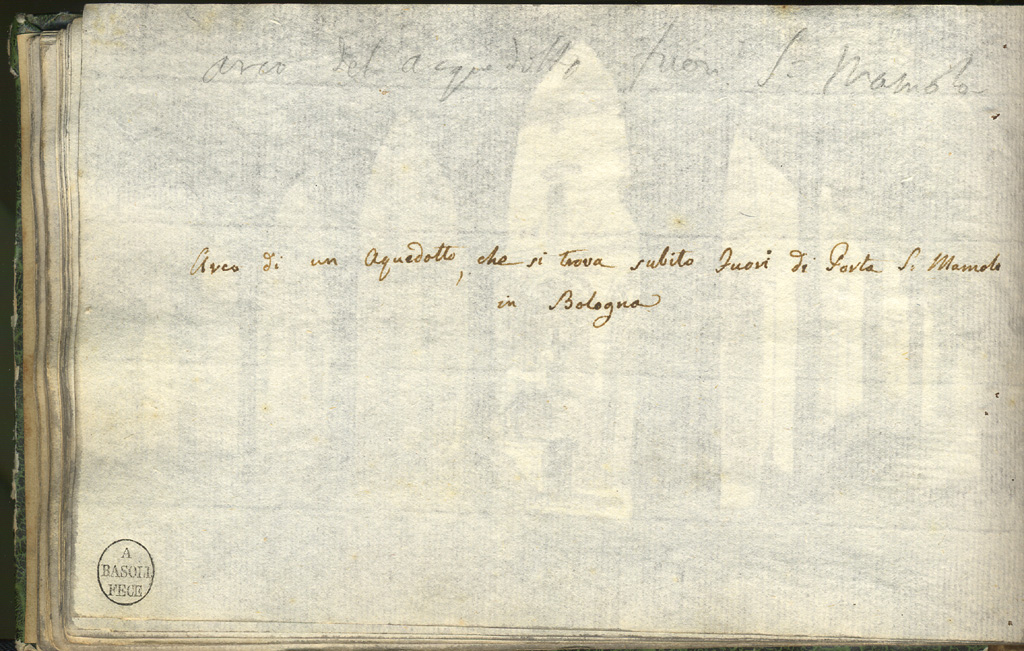 arco del acquedotto fuori S. Mamolo
Arco di un Aquedotto, che si trova subito fuori di Porta S. Mamolo
in Bologna
A
BASOLI
FECE